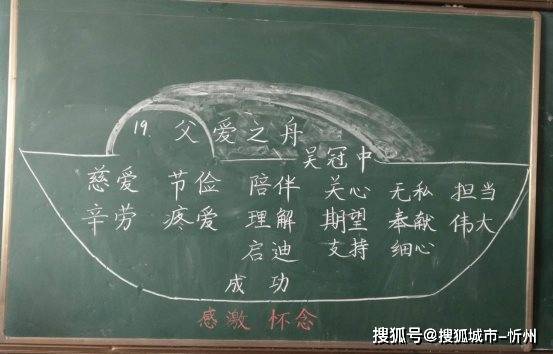 19. 父爱之舟
吴冠中
慈爱 节俭 陪伴 关心 无私 担当
辛劳 疼爱 理解 期望 奉献 伟大
启迪 支持 细心
成功
感激 怀念
搜狐号@搜狐城市-忻州